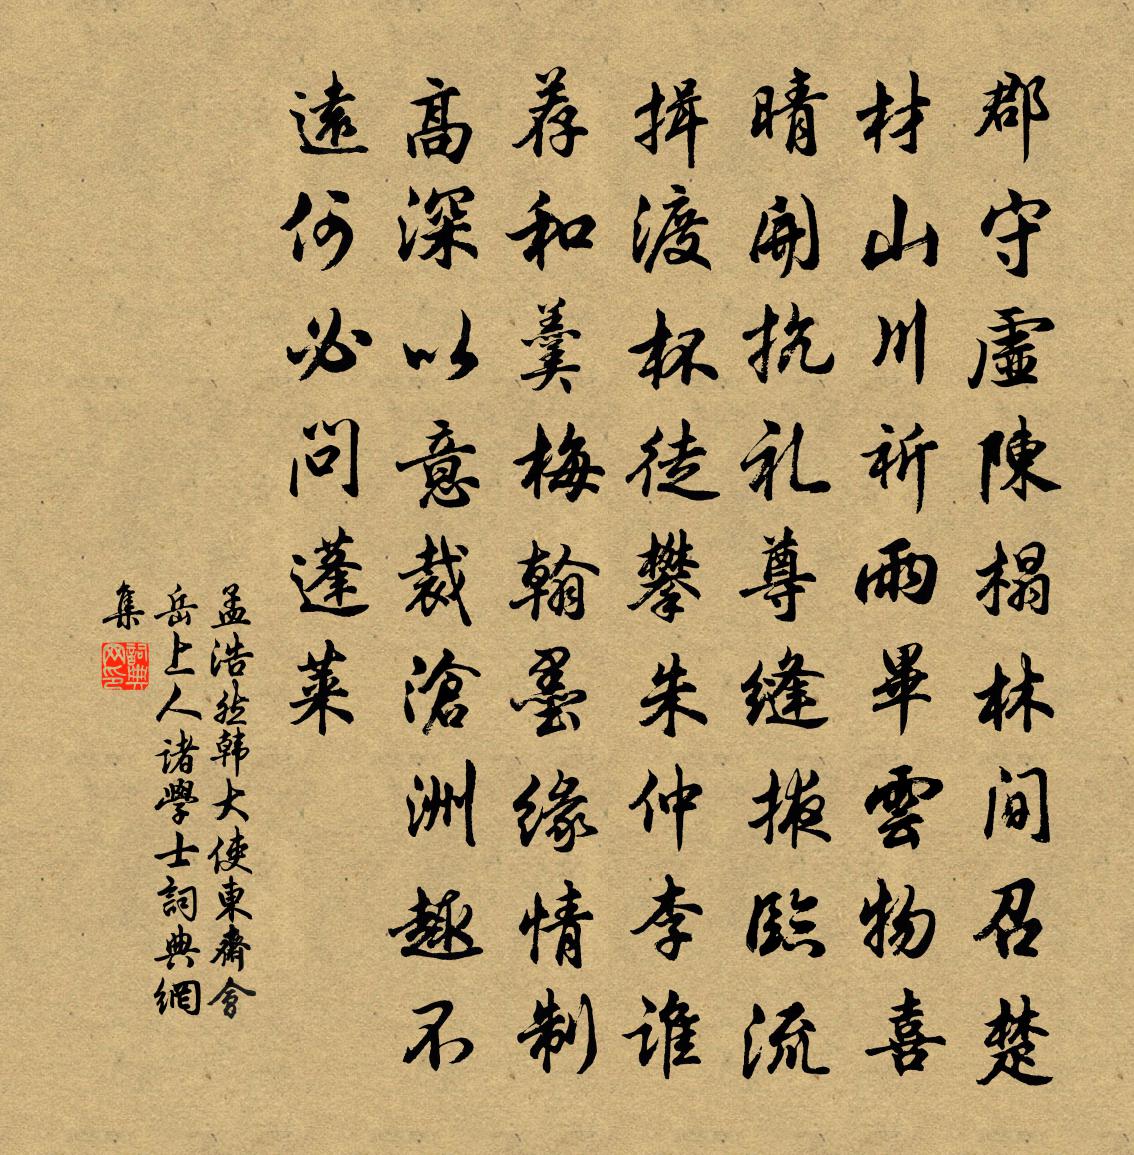 郡守虛陳榻林間召楚
材山川祈雨畢雲物喜
晴開抗礼尊縫掖臨流
揖渡杯徒攀朱仲李誰
荐和羹梅翰墨緣情制
高深以意裁滄洲趣不
遠何必問蓬萊
孟浩然韩大使東齋會
岳上人诸學士詞典網
集
詞典
网印